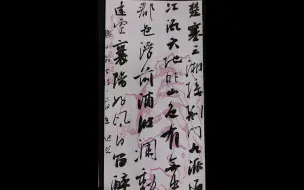 楚塞三湘接荆门九派通
江流天地外山色有無中
郡邑浮前浦波瀾動
遠空襄陽好風日留醉